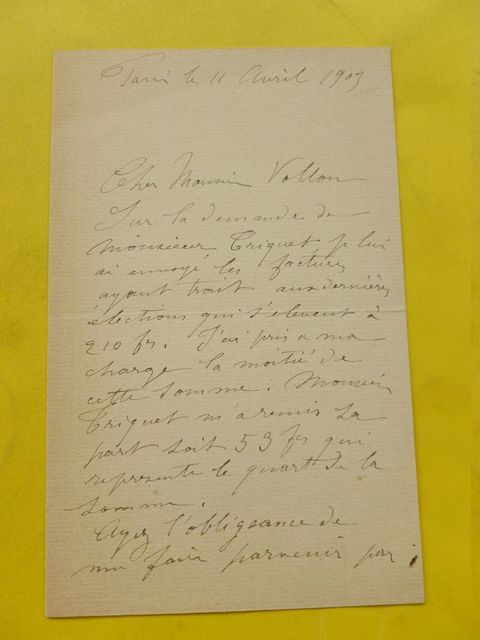 Paris le 11 Avril 1903
Cher Monsieur Vollon
Sur la demande de
Monsieur Criquet je lui
ai envoyé les factures
ayant trait aux dernières
élections qui s'élèvent à
210 frs. J'ai pris a ma
charge la moitié de
cette somme. Monsieur
Criquet m'a remis sa
part soit 53 frs qui
représente le quart de la
somme.
Ayez l'obligeance de
me faire parvenir par